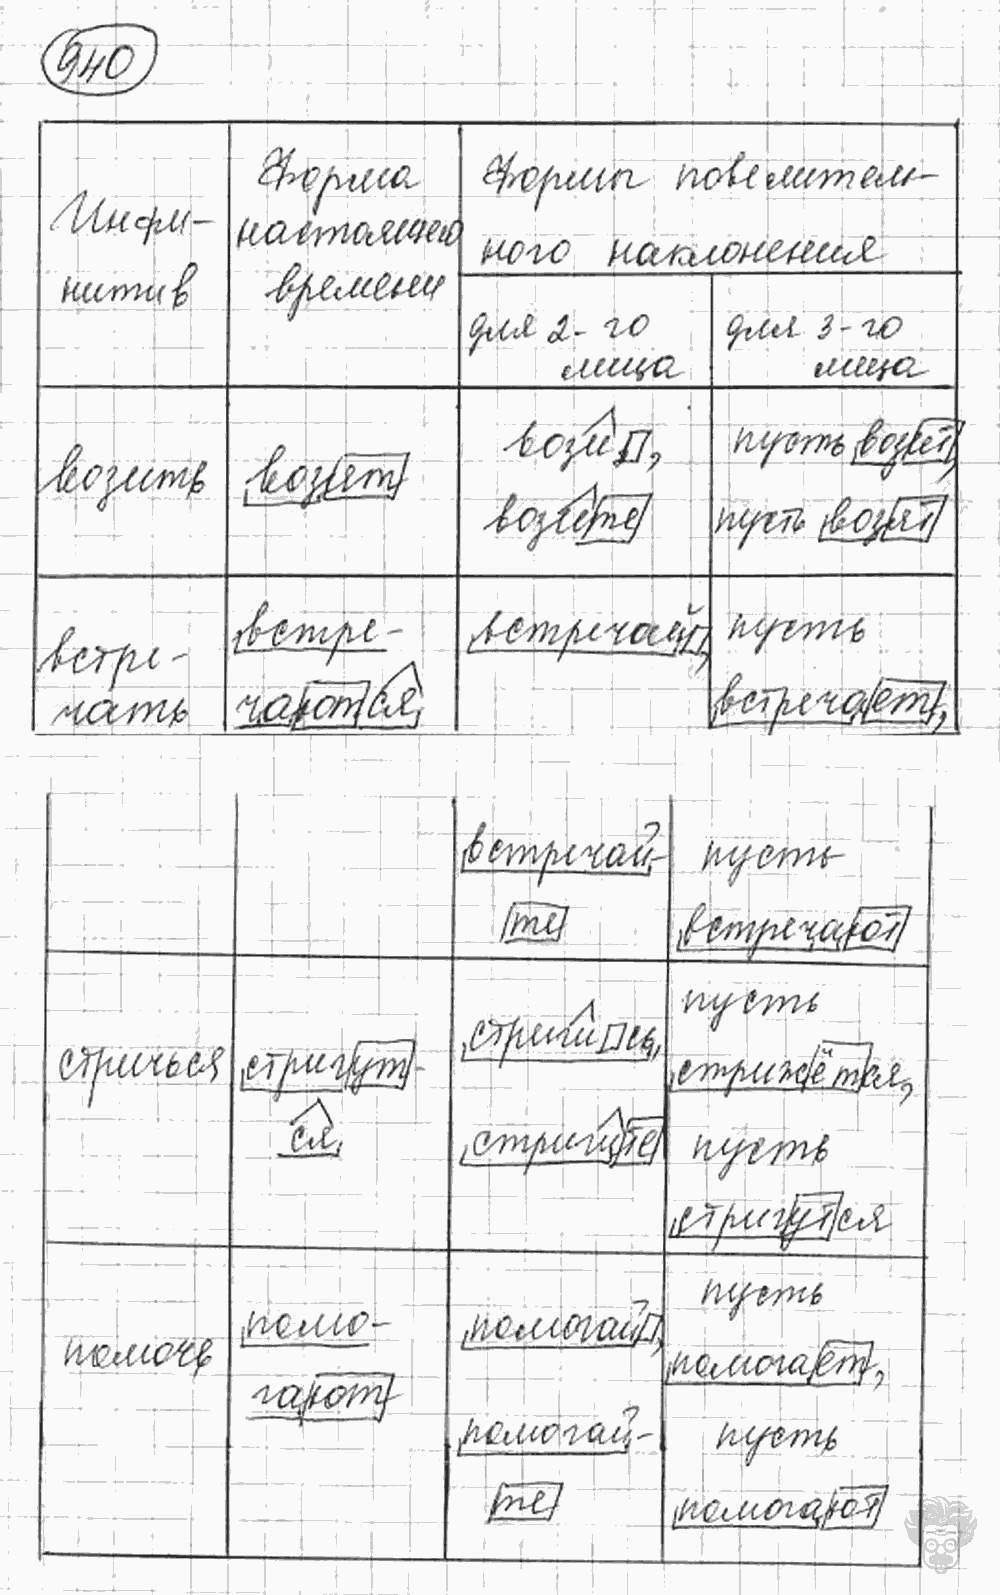 940
Инфи-
нитив
Форма
настоящего
времени
Формы повелитель-
ного наклонения
для 2-го
лица
для 3-го
лица
возить
возят
вози,
возите
пусть возит,
пусть возят
встре-
чать
встре-
чаются,
встречай,
пусть
встречает,
встречай-
те
пусть
встречают
стричься
стригут-
ся,
стригись,
стригите
пусть
стрижётся,
пусть
стригутся
помочь
помо-
гают
помогай,
помогай-
те
пусть
помогает,
пусть
помогают